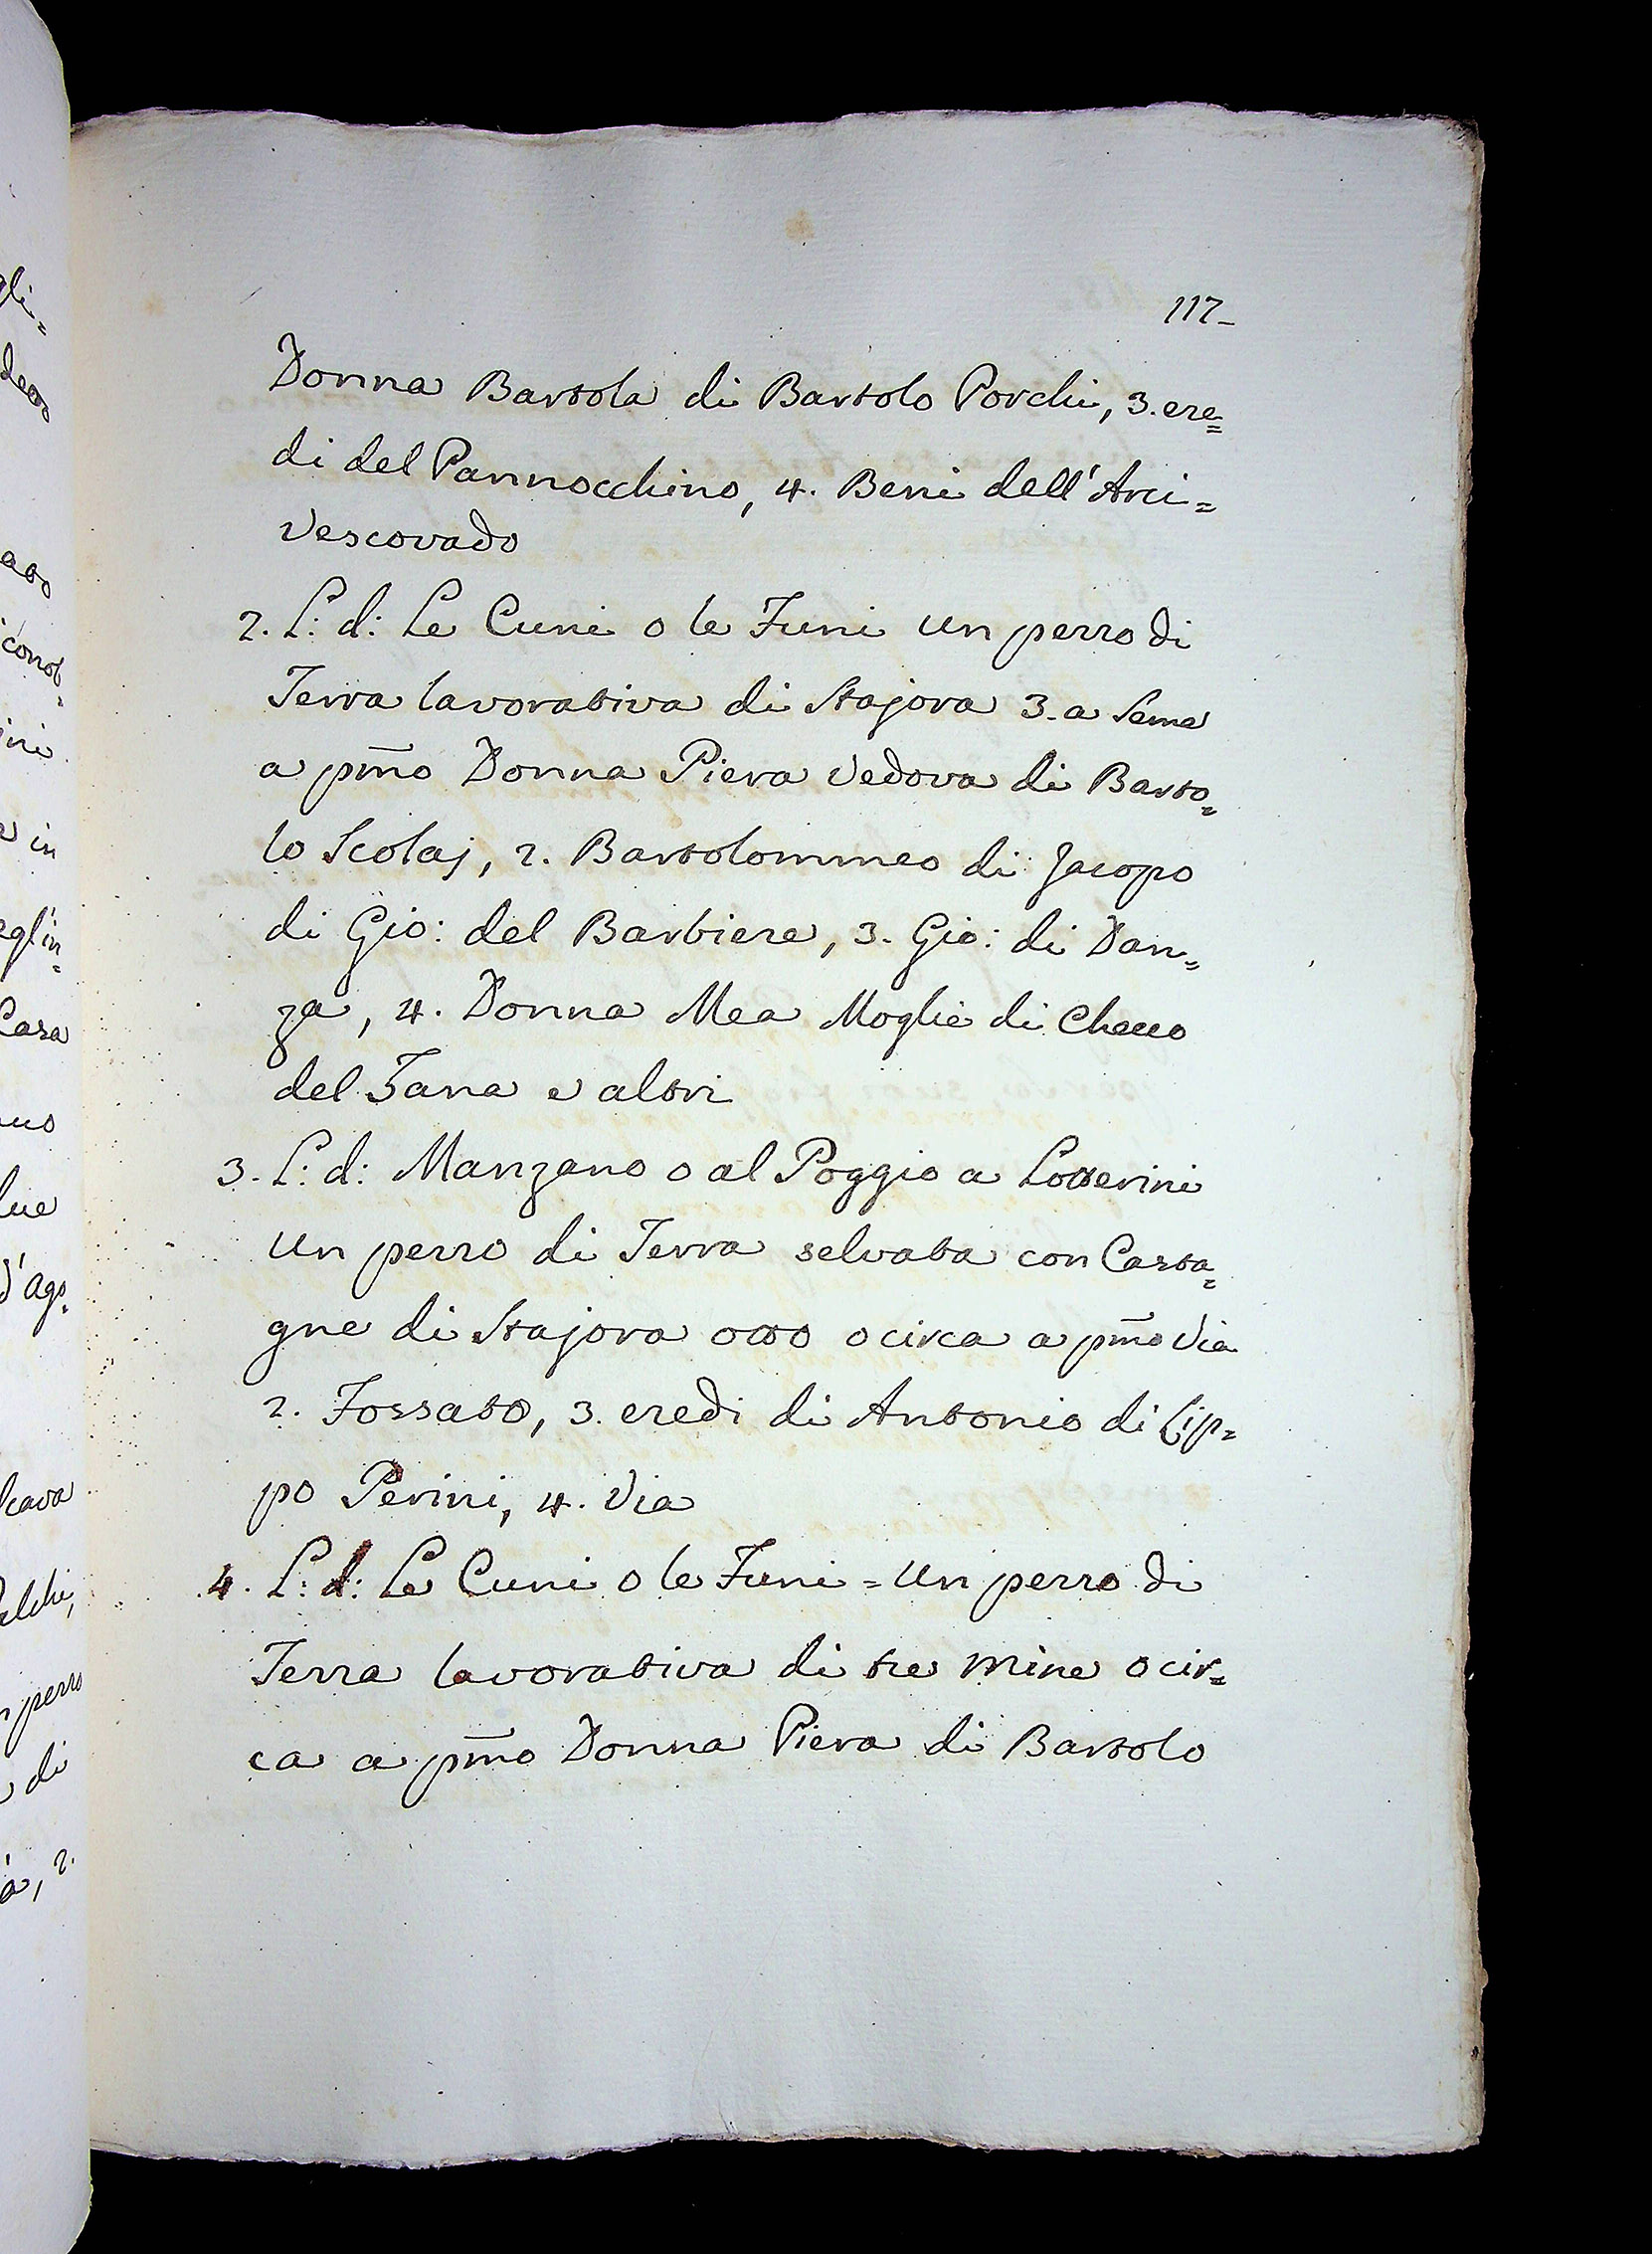 117_
Donna Bartola di Bartolo Porchi, 3. ere=
di del Pannocchino, 4. Beni dell'Arci=
Vescovado
2. L: d: Le Cuni o le Funi un pezzo di
Terra lavorativa di Stajora 3. a Seme
a pmo Donna Piera Vedova di Barto=
lo Scolaj, 2. Bartolommeo di Jacopo
di Gio: del Barbiere, 3. Gio: di Dan=
za, 4. Donna Mea Moglie di Checco
del Tana e altri
3. L: d: Manzano o al Poggio a Lotterini
un pezzo di Terra selvata con Casta=
gne di Stajora otto o circa a pmo Via
2. Fossato, 3. eredi di Antonio di Lip=
po Perini, 4. Via
4. L: d: Le Cuni o le Funi = un pezzo di
Terra lavorativa di tre mine o cir=
ca a pmo Donna Piera di Bartolo